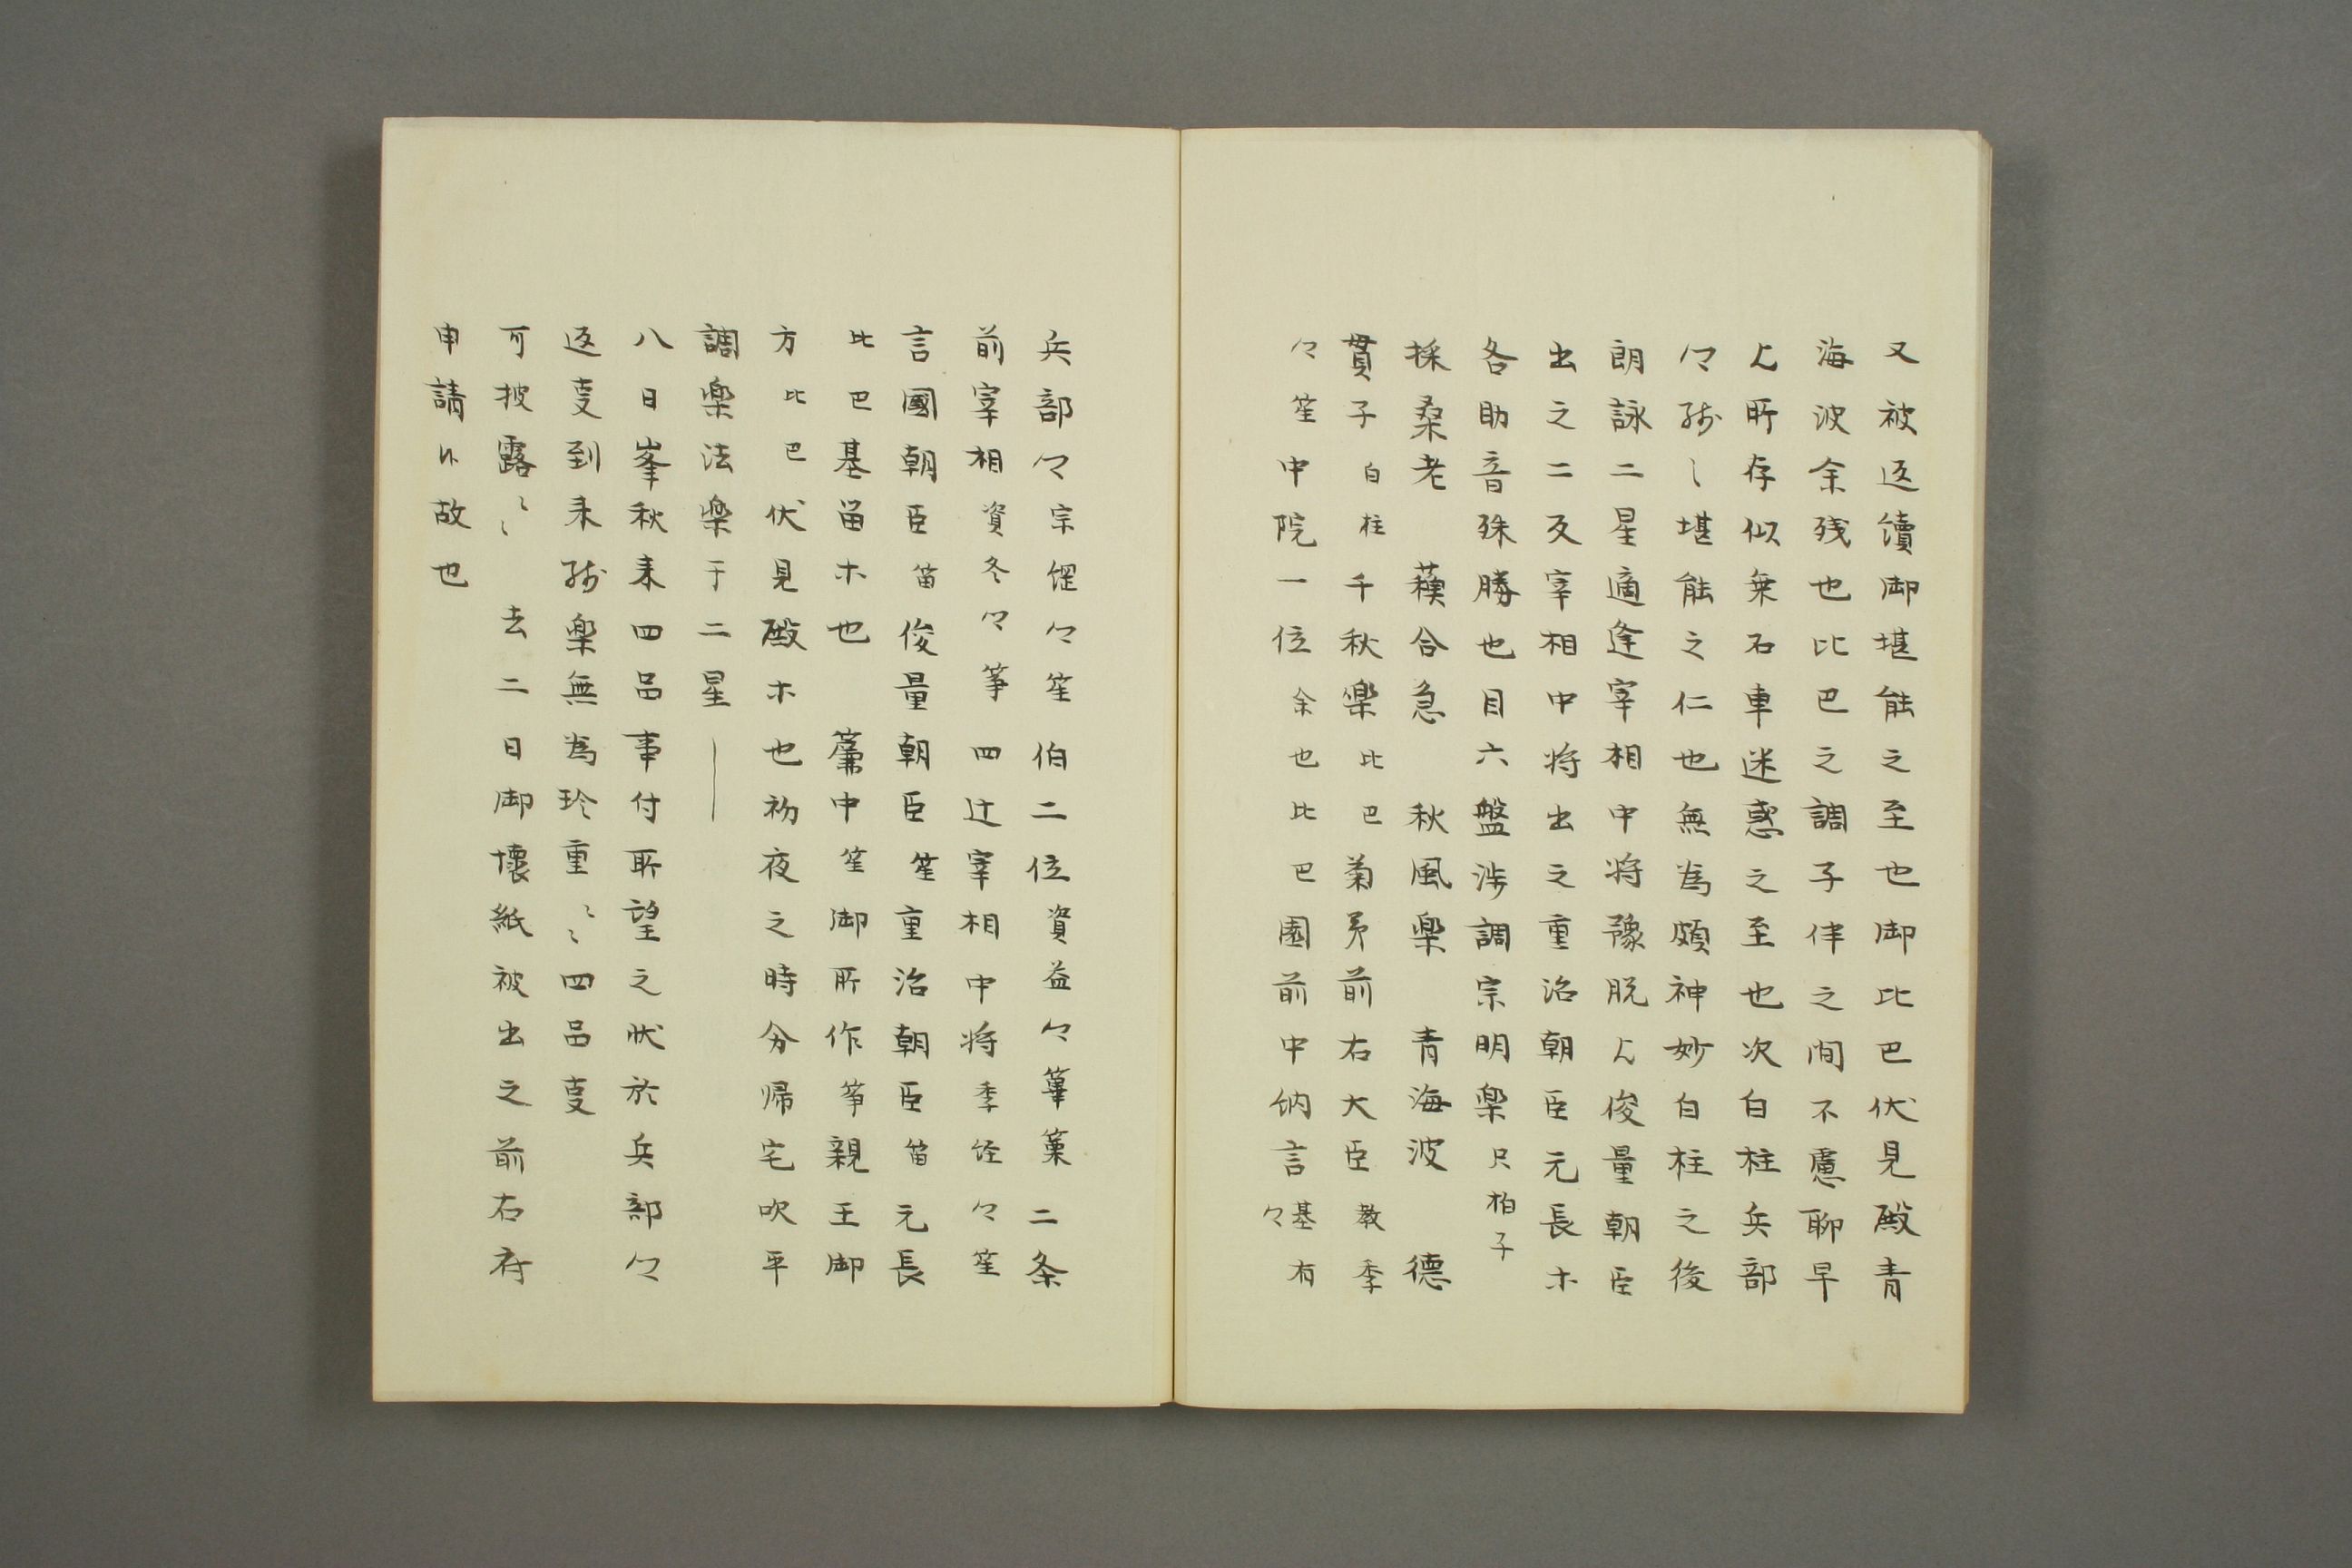 又被返續御堪能之至也御比巴伏見殿青
海波余残也比巴之調子伴之間不慮聊早
と所存似無石車迷惑之至也次白柱兵部
々残〻堪能之仁也無為頗神妙白柱之後
朗詠二星適逢宰相中将豫脱と俊量朝臣
出之二反宰相中将出之重治朝臣元長ホ
各助音殊勝也目六盤渉調宗明楽只柏子
採桑老 蘓合急 秋風楽 青海波 德
貫子 白柱 千秋楽 比巴 菊弟前右大臣教季
々笙中院一位余也比巴園前中納言基有々
兵部々宗𦊆々笙 伯二位資益々篳篥 二条
前宰相資冬々筝 四辻宰相中将季経々笙
言國朝臣笛俊量朝臣笙重治朝臣笛元長
比巴基富ホ也 簾中笙御所作筝親王御
方比巴伏見殿ホ也初夜之時分帰宅吹平
調楽法楽于二星
八日峯秋来四品事付所望之状於兵部々
返㕝到来残楽無為珎重〻〻四品㕝
可披露〻〻 去二日御懐紙被出之前右府
申請け故也